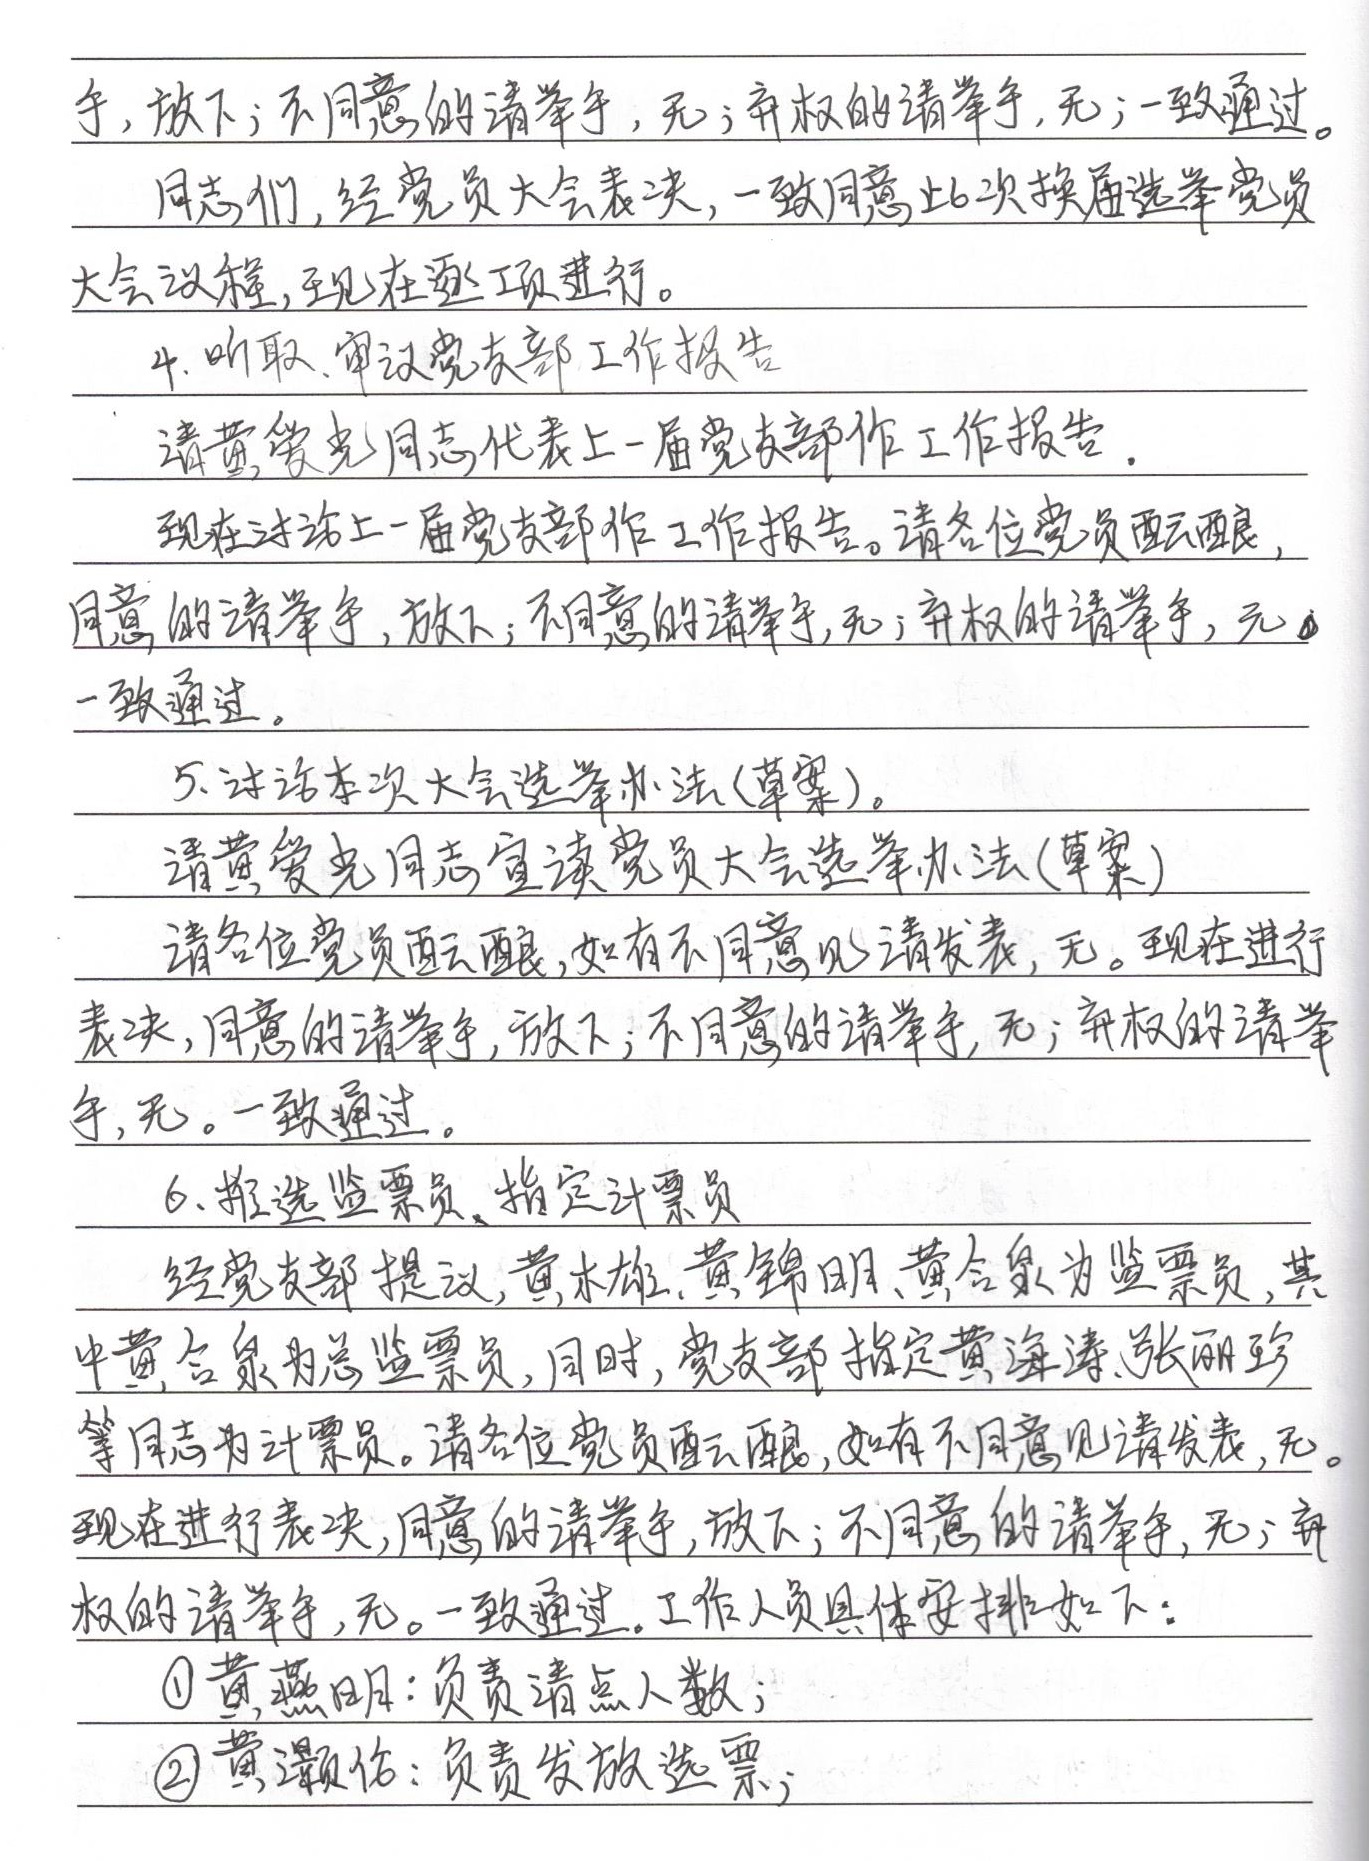 手，放下；不同意的请举手，无；弃权的请举手，无；一致通过。
同志们，经党员大会表决，一致同意此次换届选举党员
大会议程，现在逐项进行。
4、听取、审议党支部工作报告
请黄爱光同志代表上一届党支部作工作报告.
现在讨论上一届党支部作工作报告。请各位党员酝酿，
同意的请举手，放下；不同意的请举手，无；弃权的请举手，无。
一致通过。
5、讨论本次大会选举办法(草案)。
请黄爱光同志宣读党员大会选举办法(草案)
请各位党员酝酿，如有不同意见请发表，无。现在进行
表决，同意的请举手，放下；不同意的请举手，无；弃权的请举
手，无。一致通过。
6、推选监票员、指定计票员
经党支部提议，黄木雄、黄锦明、黄合泉为监票员，其
中黄合泉为总监票员，同时，党支部指定黄海涛、张丽珍
等同志为计票员。请各位党员酝酿，如有不同意见请发表，无。
现在进行表决，同意的请举手，放下；不同意的请举手，无；弃
权的请举手，无。一致通过。工作人员具体安排如下：
①黄燕明：负责清点人数；
②黄灏：负责发放选票；